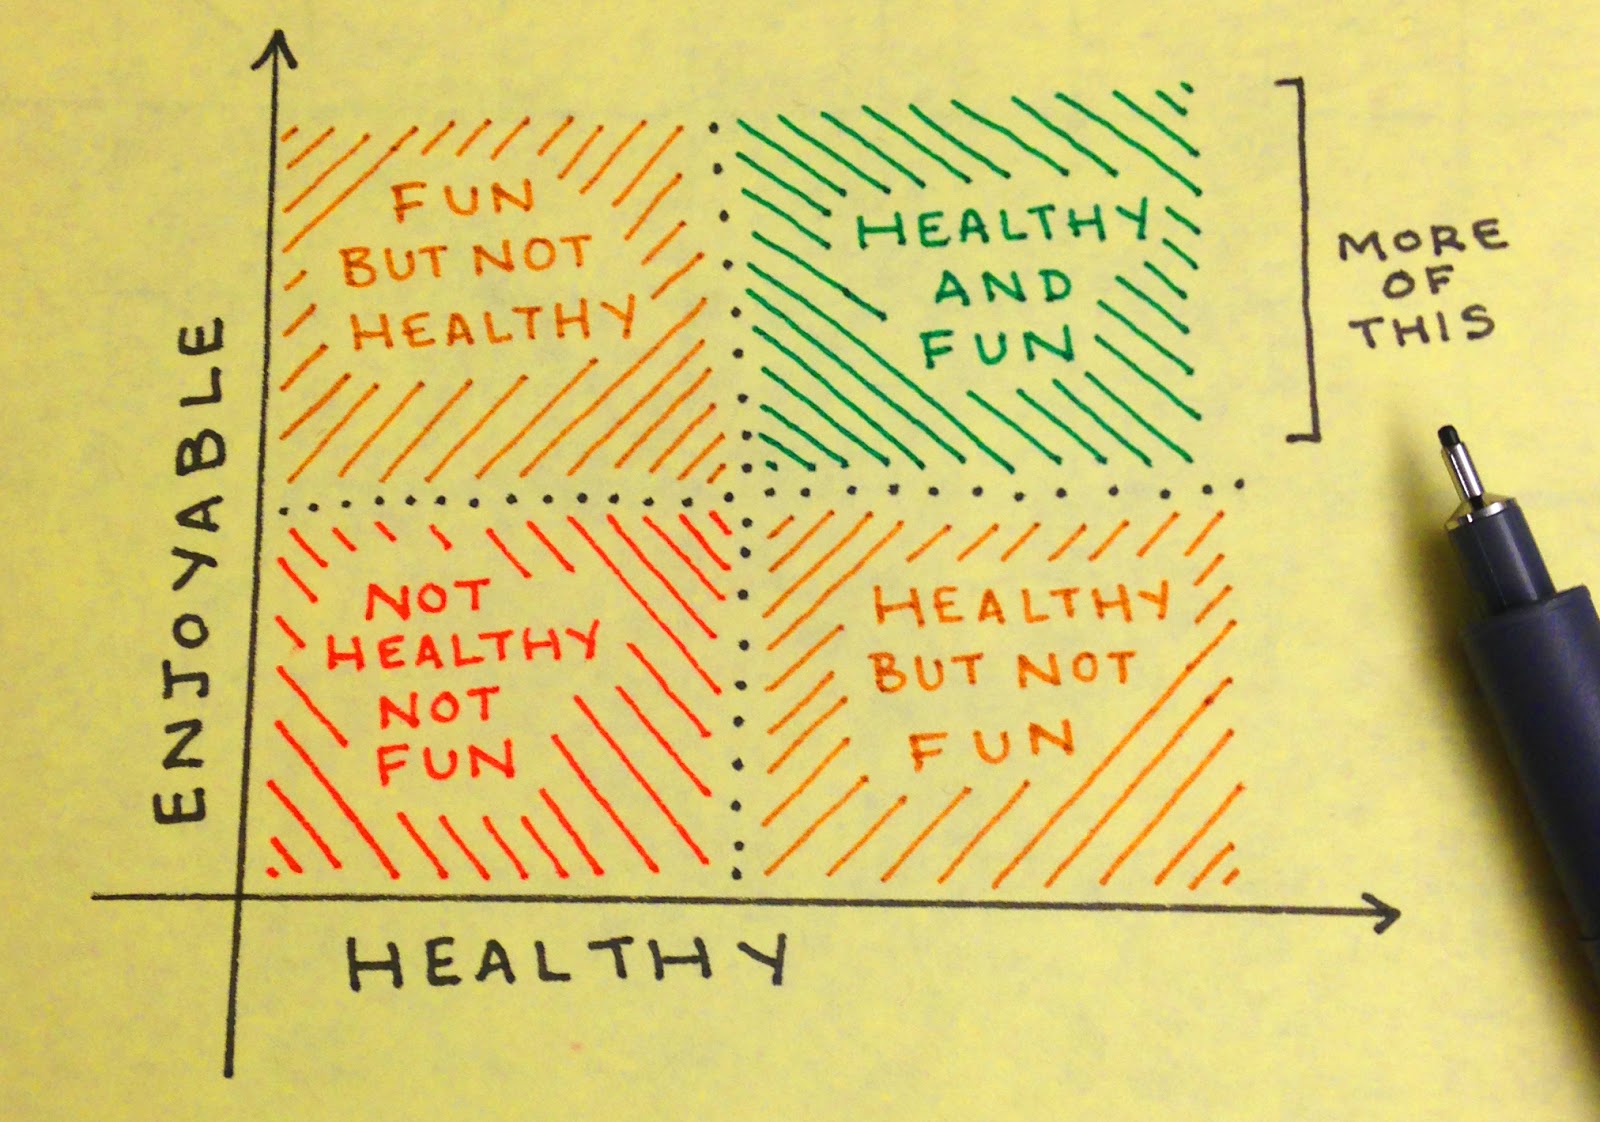 FUN
BUT NOT
HEALTHY
HEALTHY
AND
FUN
MORE
OF
THIS
NOT
HEALTHY
NOT
FUN
HEALTHY
BUT NOT
FUN
ENJOYABLE
HEALTHY